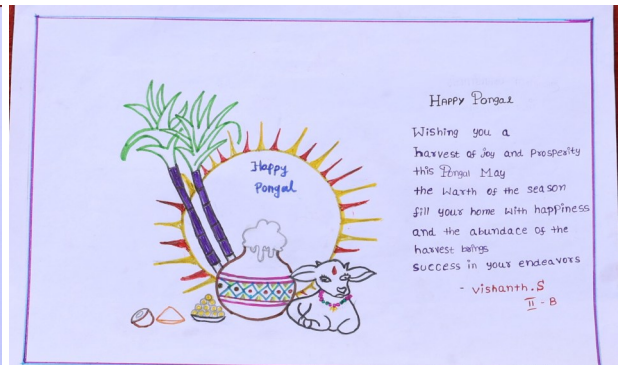 Happy
Pongal
HAPPY Pongal
Wishing you a
harvest of Joy and Prosperity
this Pongal May
the Warth of the season
fill your home with happiness
and the abundace of the
harvest brings
success in your endeavors
- Vishanth.S
II - B